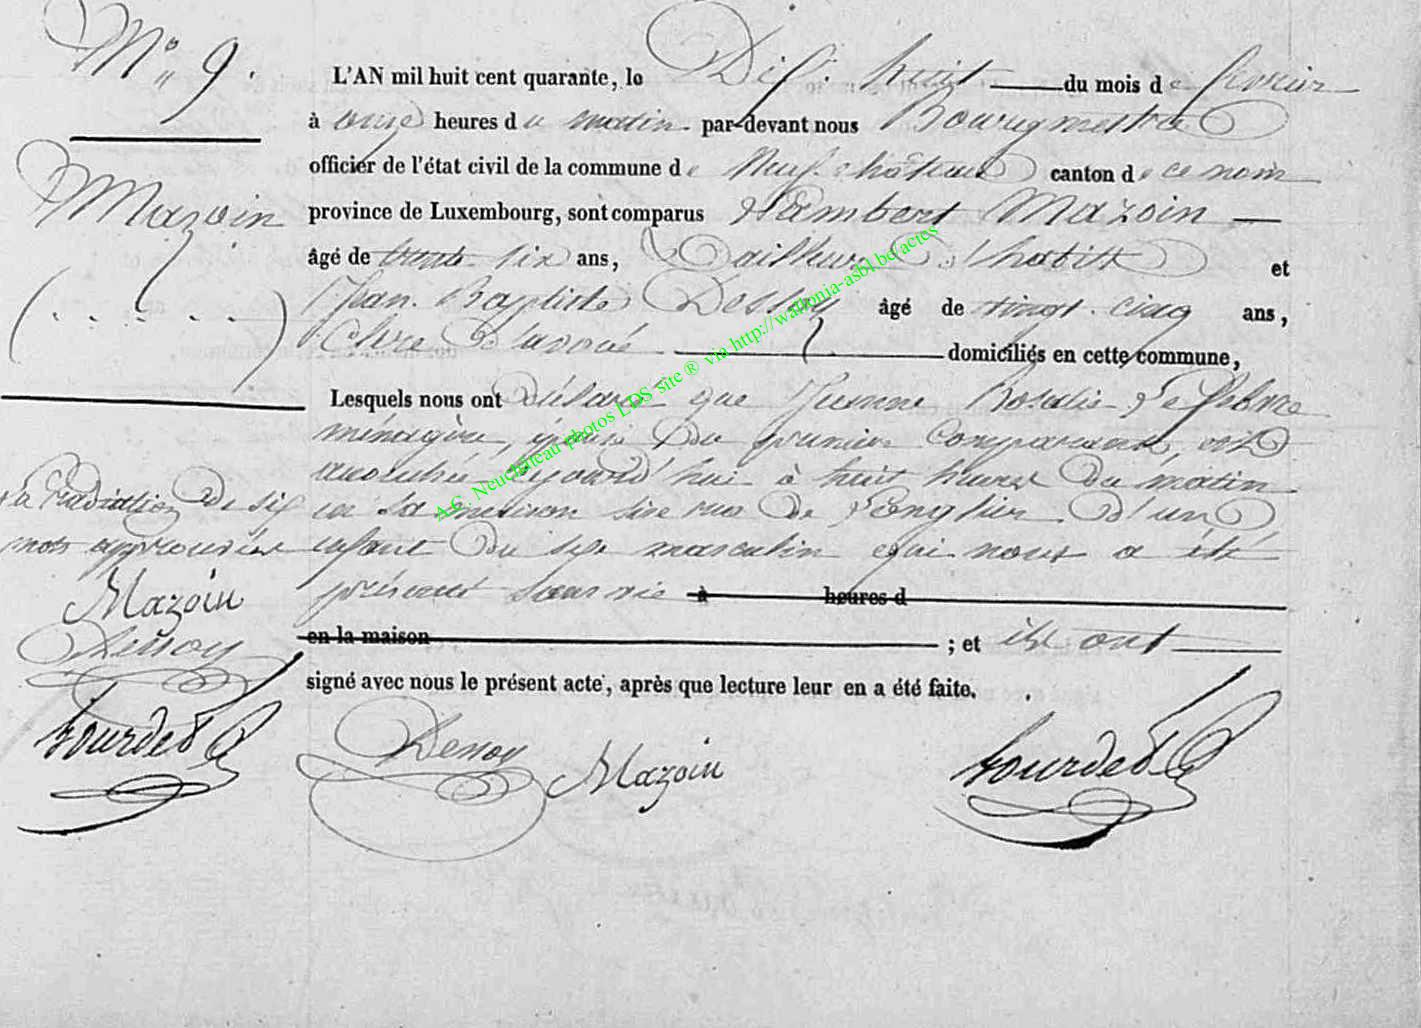 N° 9.
Mazoin
(. . . . . .)
L'AN mil huit cent quarante, le Dix huit du mois de fevrier
à onze heures du matin par-devant nous Bourgmestre
officier de l'état civil de la commune de Neufchâteau canton de ce nom
province de Luxembourg, sont comparus Lambert Mazoin
âgé de trente six ans, Tailleur d'habits et
Jean Baptiste Dessoy âgé de vingt cinq ans,
Clerc d'avoué domiciliés en cette commune,
Lesquels nous ont déclaré que Rosalie Lefebvre
ménagère, épouse du premier comparant, est
accouchée aujourd'hui à huit heures du matin
en sa maison sise rue de d'un
enfant du sexe masculin qui nous a été
présenté sans vie à heures d
en la maison ; et ils ont
signé avec nous le présent acte, après que lecture leur en a été faite.
La radiation de six
mots approuvée
Mazoin
Dessoy
Bourdet
Dessoy Mazoin Bourdet
A.C. Neufchâteau photos LDS site ® via http://wallonia-asbl.bd actes